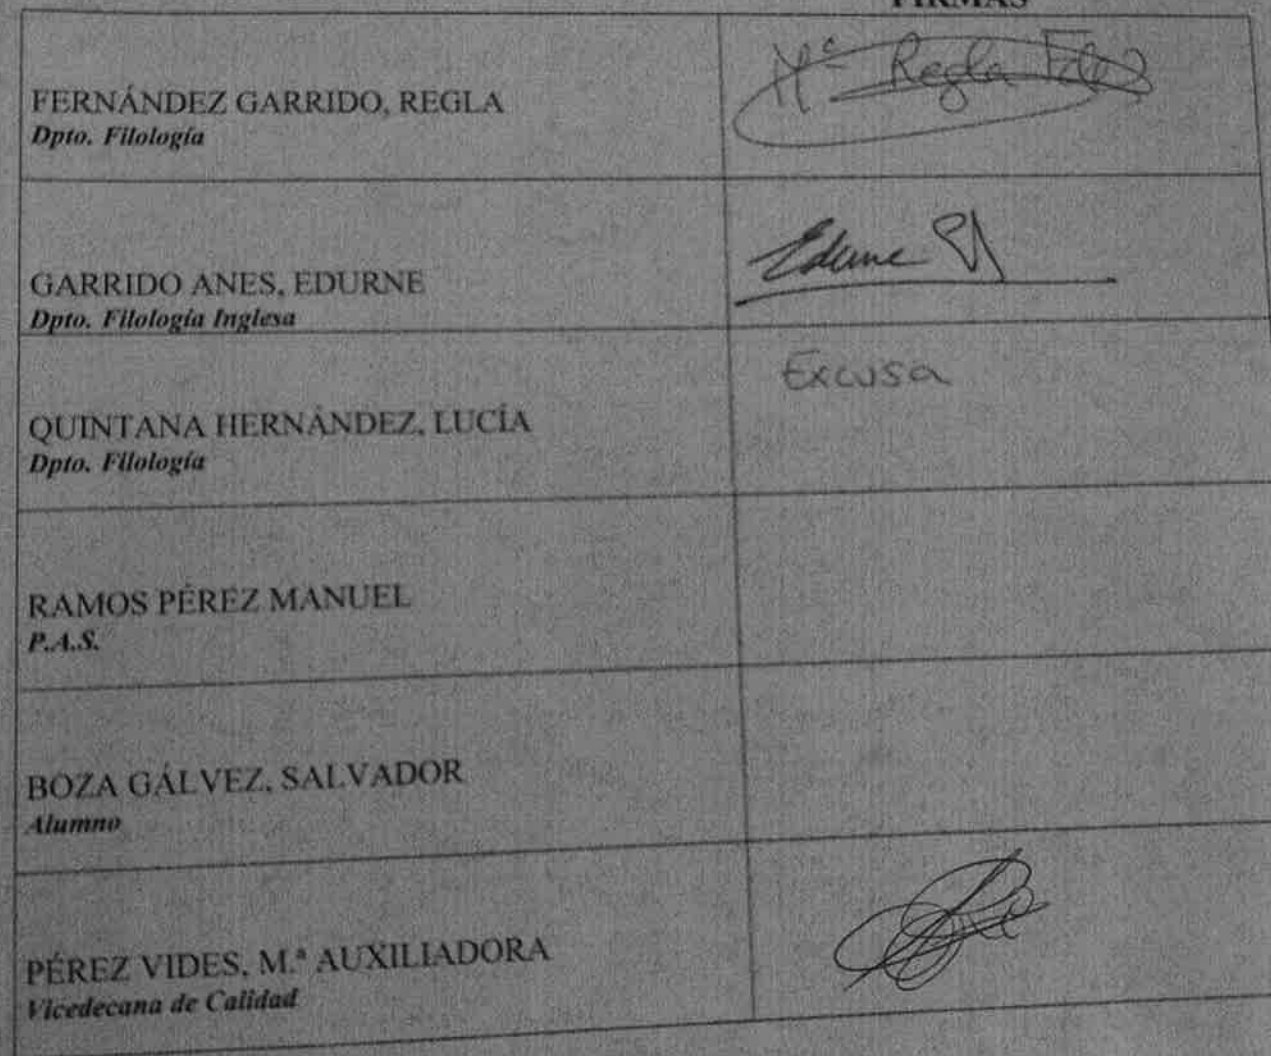 FIRMAS
FERNÁNDEZ GARRIDO, REGLA
Dpto. Filología
Mª Regla Fdez
GARRIDO ANES, EDURNE
Dpto. Filología Inglesa
Edurne
QUINTANA HERNÁNDEZ, LUCÍA
Dpto. Filología
Excusa
RAMOS PÉREZ MANUEL
P.A.S.
BOZA GÁLVEZ, SALVADOR
Alumno
PÉREZ VIDES, M.ª AUXILIADORA
Vicedecana de Calidad